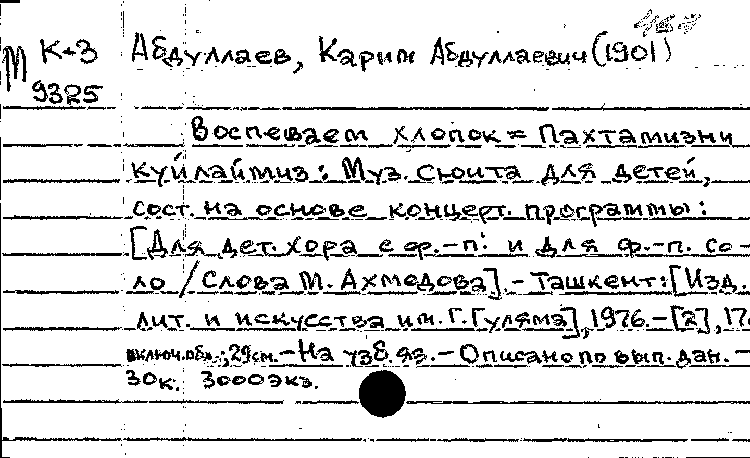 М К-3 Абдуллаев, Карим Абдуллаевич (1901)
9325
Воспеваем хлопок = Пахтамизни
куйлаймиз: Муз. сюита для детей,
сост. на основе концерт. программы:
[Для дет. хора с ф.-п: и для ф.-п. со-
ло / Слова М. Ахмедова]. - Ташкент: [Изд.
лит. и искусства им. Г. Гуляма], 1976. - [2], 17
включ. обл.; 29см. - На узб. яз. - Описано по вып. дан. -
30к. 3000 экз.